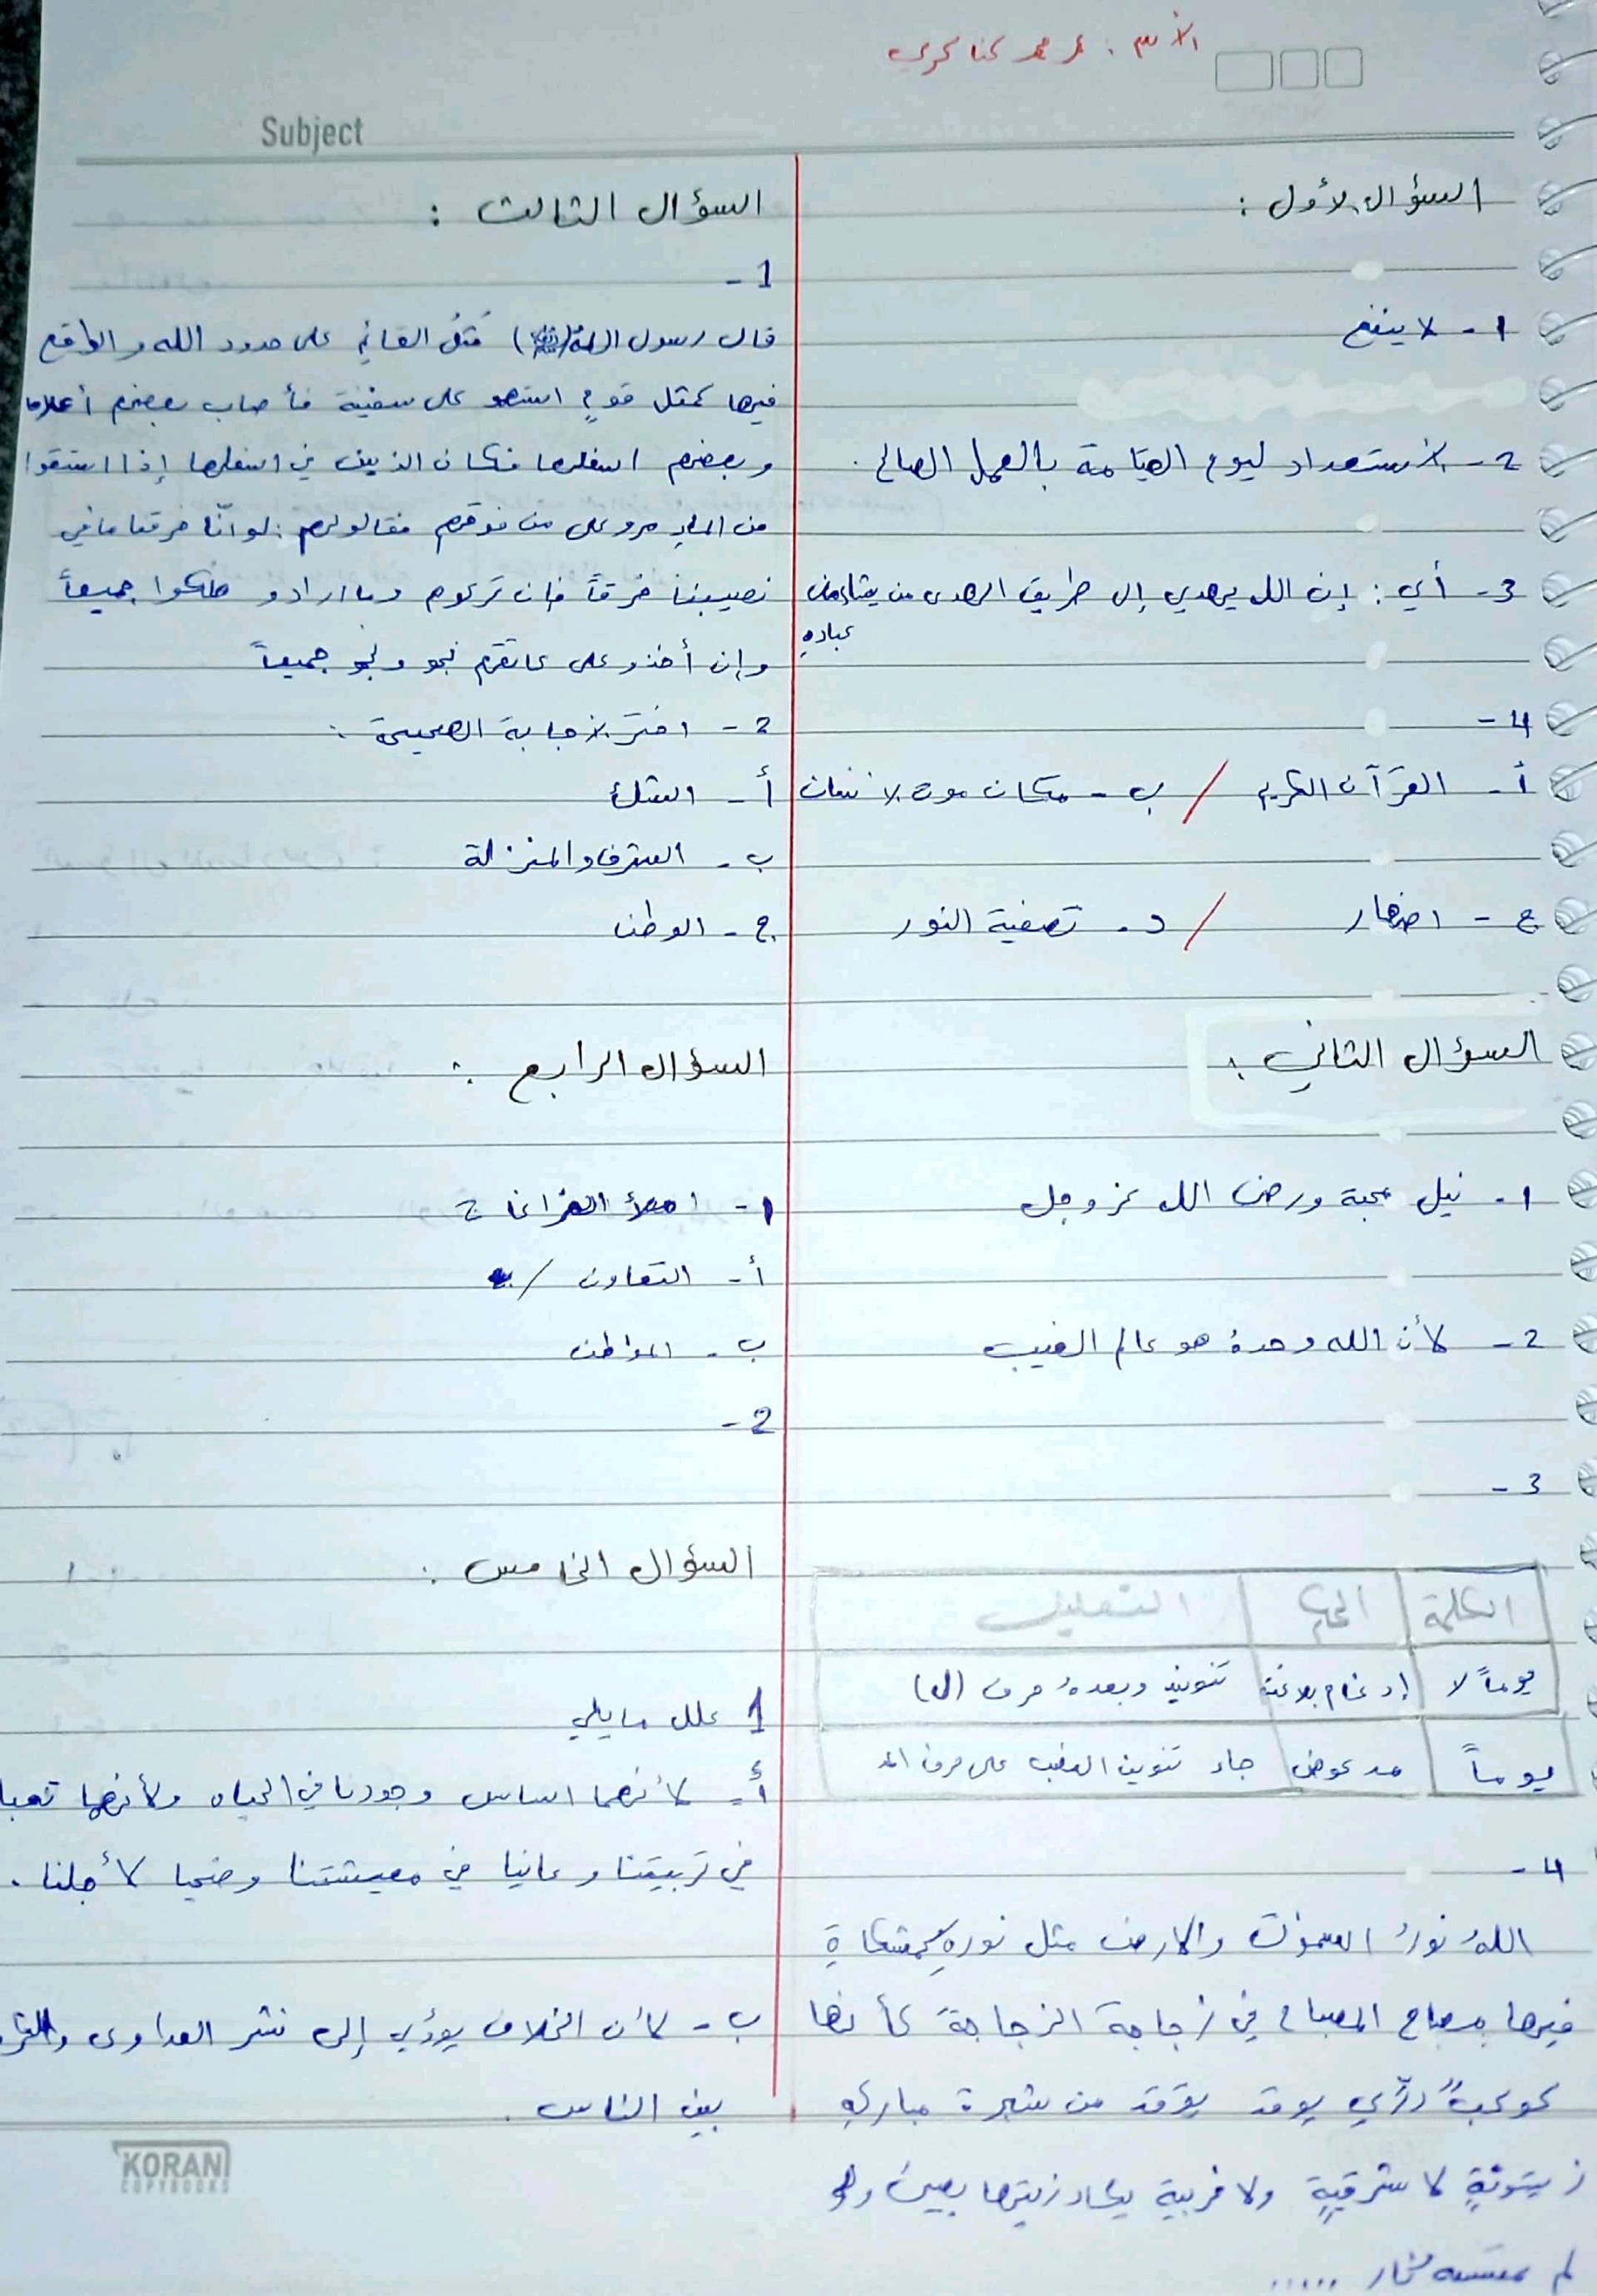 الاسم : عمر محمد
Subject
السؤال الأول :
1- لا ينفع
2- الاستعداد ليوم القيامة بالعمل الصالح .
3- أي : إن الله يهدي إلى طريق الهدى من يشاء من
عباده
4-
أ- القرآن الكريم / ب- مكان موت الانسان
ج- اضهار / د- تصفية النور
السؤال الثاني :
1- نيل محبة ورضى الله عز وجل
2- لأن الله وحدهُ هو عالم الغيب
3-
الكلمة الحكم التعليل
يوماً لا إدغام بلا غنة تنوين وبعدهُ حرف (ل)
يوماً مد عوض جاء تنوين النصب على حرف المد
4-
اللهُ نورُ السموات والارض مثل نورهِ كمشكاةٍ
فيها مصباح المصباح في زجاجة الزجاجة كأنها
كوكبٌ درّي يوقد من شجرة مباركةٍ
زيتونةٍ لا شرقيةٍ ولا غربية يكاد زيتها يضيئ ولو
لم تمسسه نار .....
السؤال الثالث :
1-
قال رسول الله (ﷺ) مَثلُ القائمِ على حدود الله والواقع
فيها كمثل قومٍ استهمو على سفينة فأصاب بعضهم أعلاها
وبعضهم اسفلها فكان الذين في اسفلها إذا استقوا
من الماءِ مرو على من فوقهم فقالو لهم : لو انّا خرقنا ما في
نصيبنا خرقاً فإن تركوهم وما ارادو هلكوا جميعاً
وإن أخذو على عاتقهم نجو ونجو جميعاً
2- اختر الاجابة الصحيحة :
ب- الشرف والمنزلة
ج- الوطن
السؤال الرابع :
1- املأ الفراغات
أ- التعاون /
ب- المواطن
2-
السؤال الخامس :
1 علل ما يلي
أ- لأنهما اساس وجودنا في الحياه ولأنهما تعبا
في تربيتنا وعانيا في معيشتنا وضحيا لأجلنا .
ب- لأن الخلاف يؤدي إلى نشر العداوى
بين الناس .
KORAN
COPYBOOKS